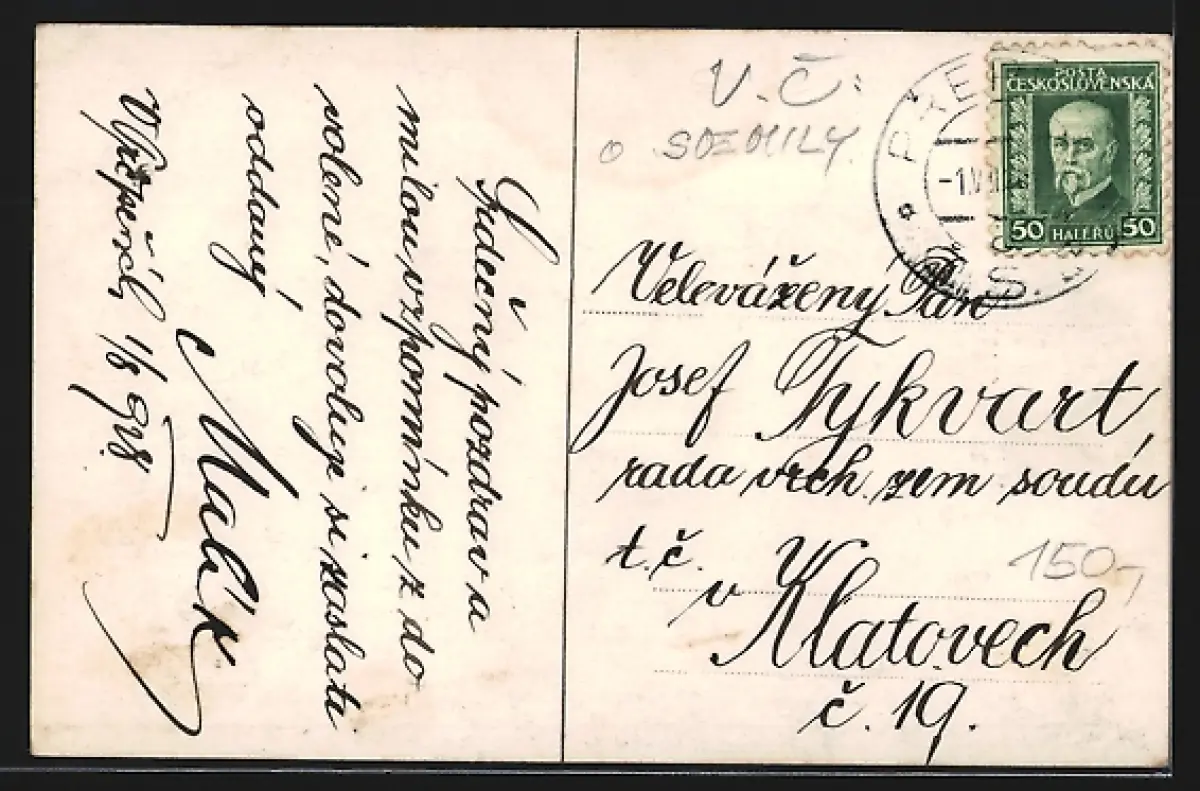 Srdečný pozdrav a
milou vzpomínku z do
volené, dovoluje si zaslati
oddaný
Malík
1/8 928.
V.Č:
o SEMILY
POŠTA
ČESKOSLOVENSKÁ
50 HALÉŘŮ 50
Velevážený Pán
Josef Tykvart,
rada vrch. zem soudu
t.č.
v Klatovech
č. 19.
150,-